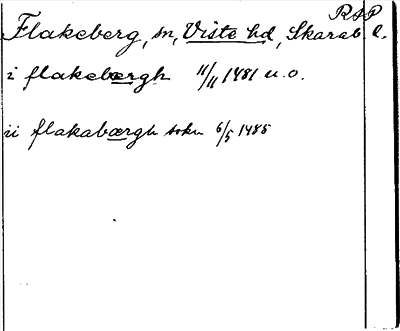 RSP
Flakeberg, sn, Viste hd, Skarab. l.
i flakebærgh 11/11 1481 u.o.
ii flakabærgh sokn 6/5 1485